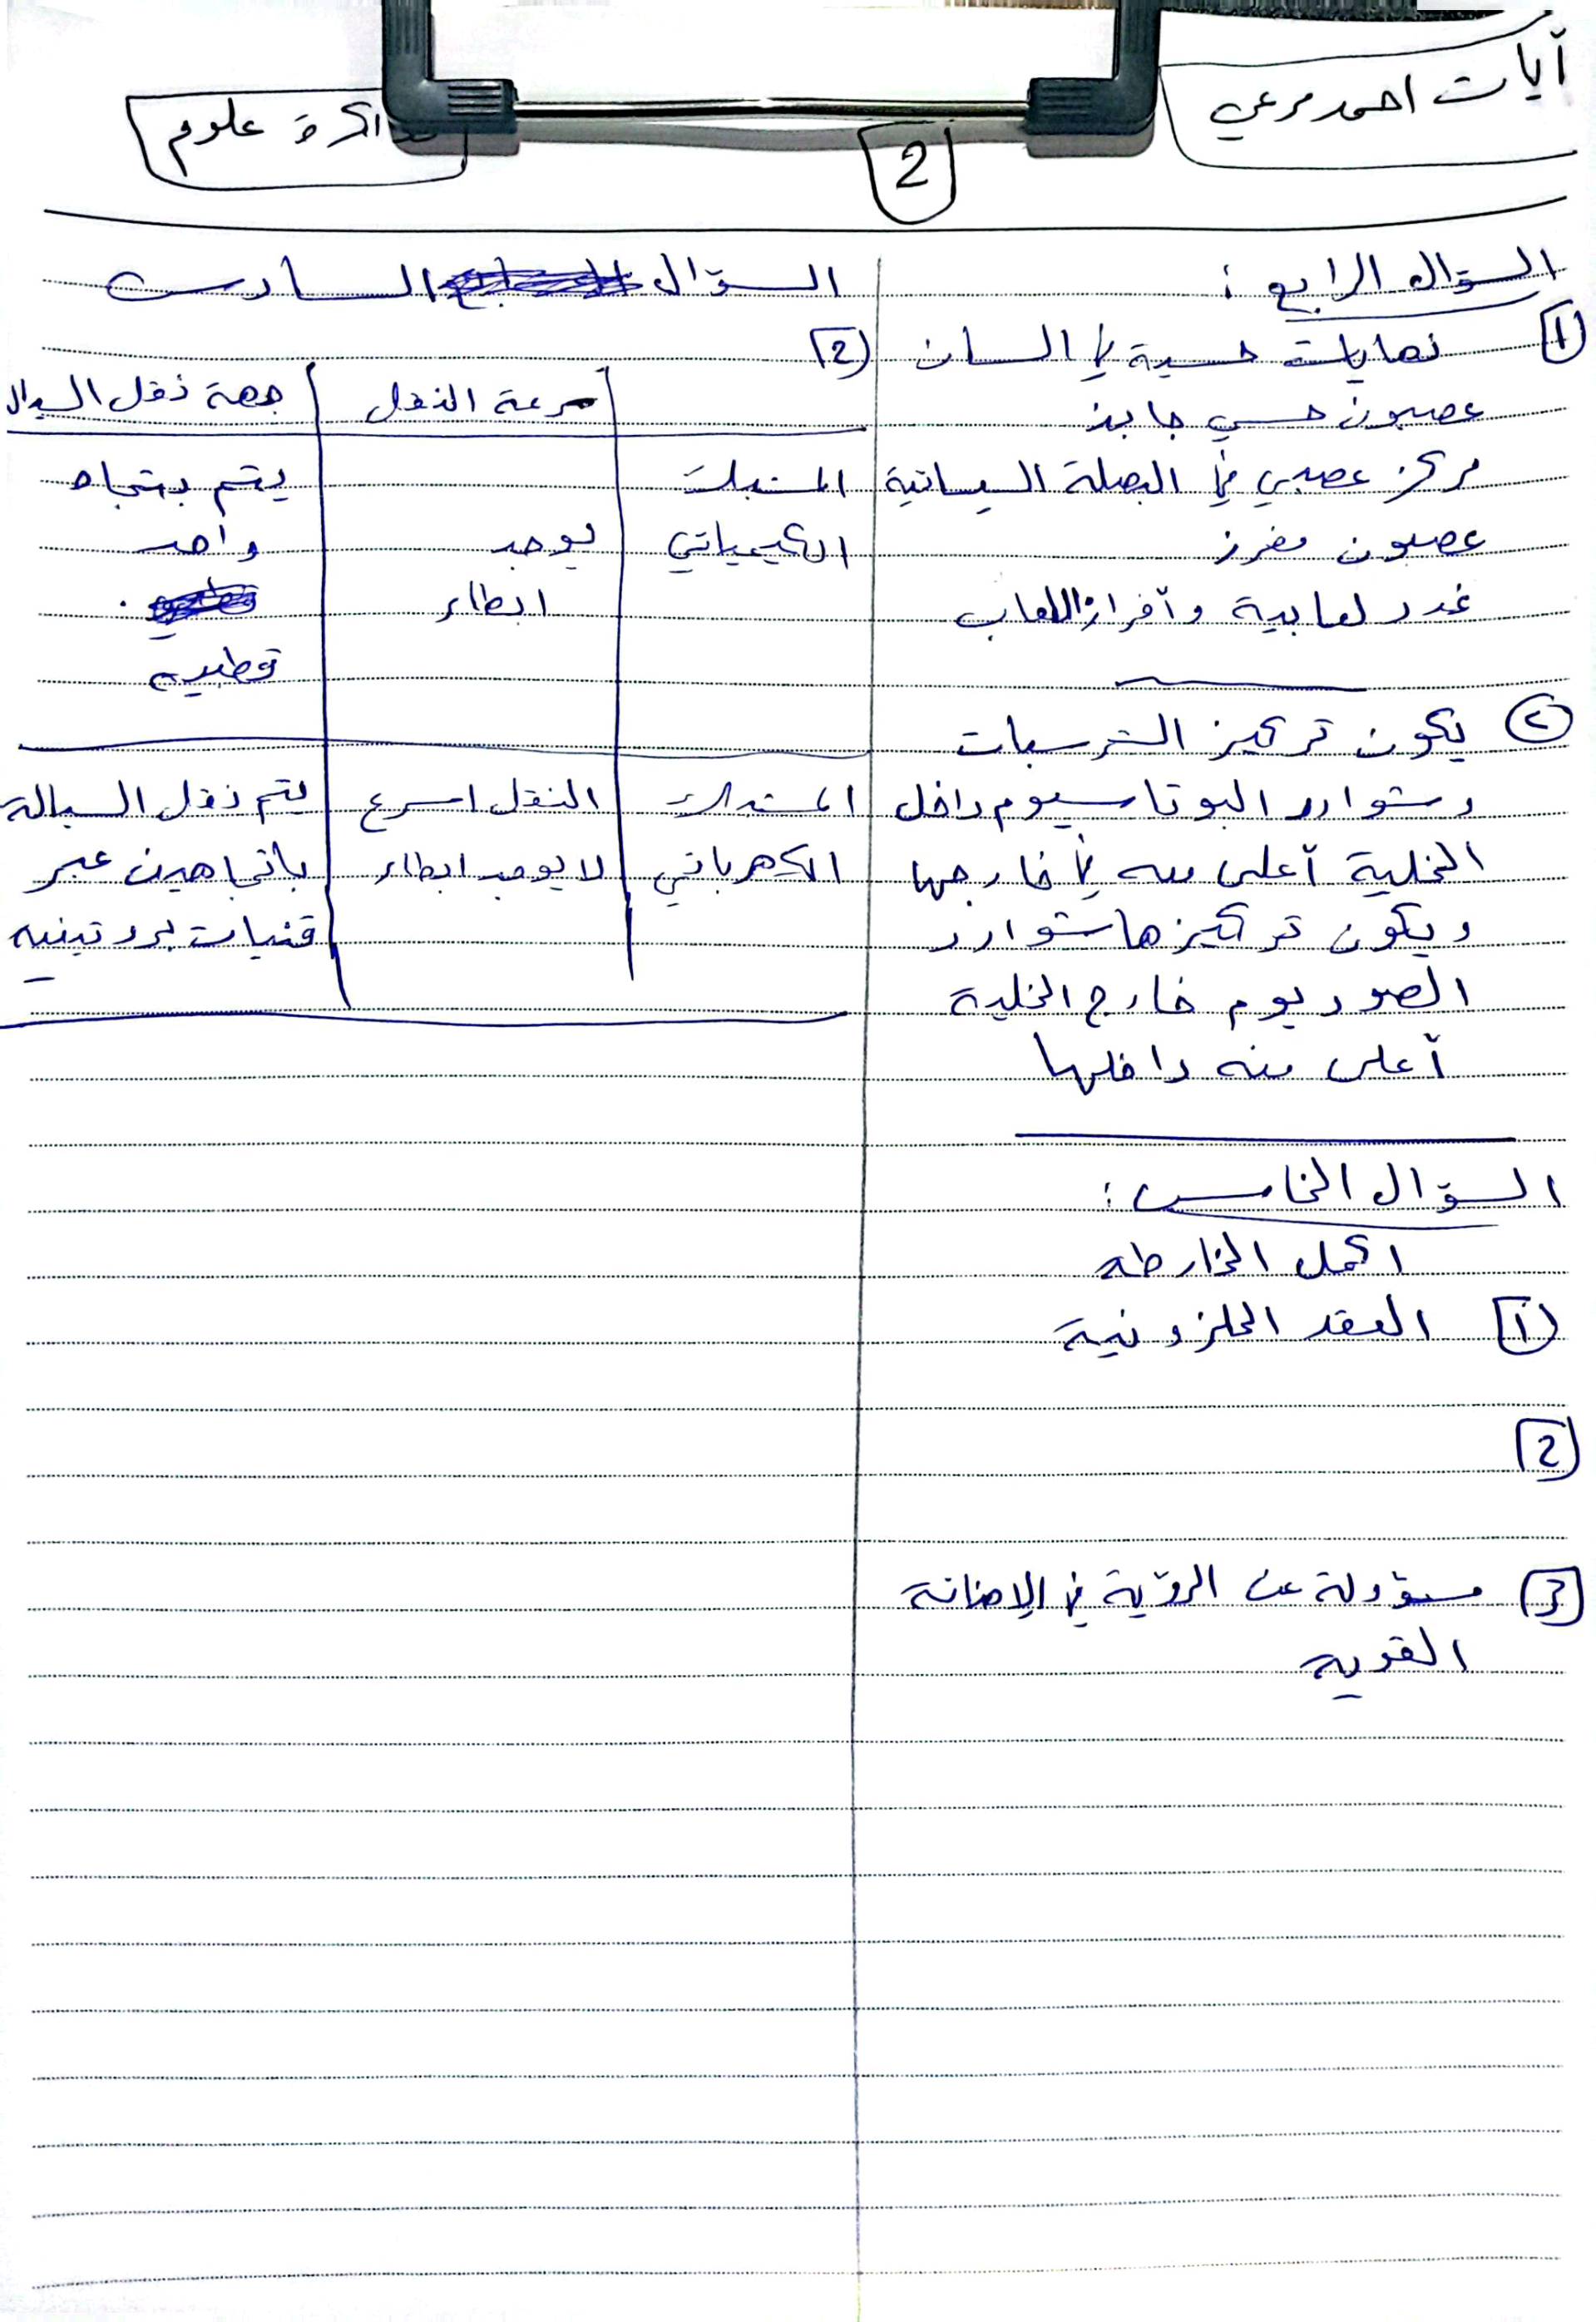 آيات احمد مرعي
2
مذاكرة علوم
السؤال الرابع :
1 نهايات حسية في السان
عصبون حسي جابذ
مركز عصبي في البصلة السيسائية
عصبون مفرز
غدد لعابية وأفراز اللعاب
٢ يكون تركيز الشرسبات
وشوارد البوتاسيوم داخل
الخلية أعلى منه في خارجها
ويكون تركيزها شوارد
الصوديوم خارج الخلية
أعلى منه داخلها
السؤال الخامس :
اكمل الخارطه
1 العقد الحلزونية
2
3 مسؤولة عن الرؤية في الإضائة
القوية
السؤال السادس
2
سرعة النقل | جهة نقل السيال
المشبك | يتم بتجاه
الكيميائي | يوجد | واحد
ابطاء
قطبيه
المشبك | النقل اسرع | يتم نقل السيالة
الكهربائي | لا يوجد ابطاء | باتجاهين عبر
قنيات بروتينيه